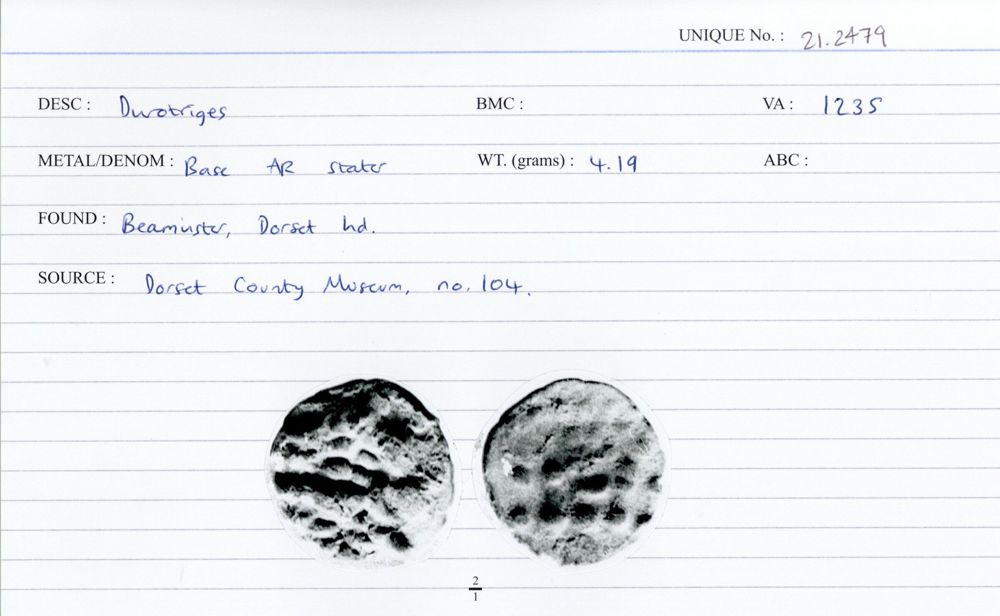 UNIQUE No. : 21.2479
DESC : Durotriges BMC : VA : 1235
METAL/DENOM : Base AR stater WT. (grams) : 4.19 ABC :
FOUND : Beaminster, Dorset hd.
SOURCE : Dorset County Museum, no. 104.
2
1